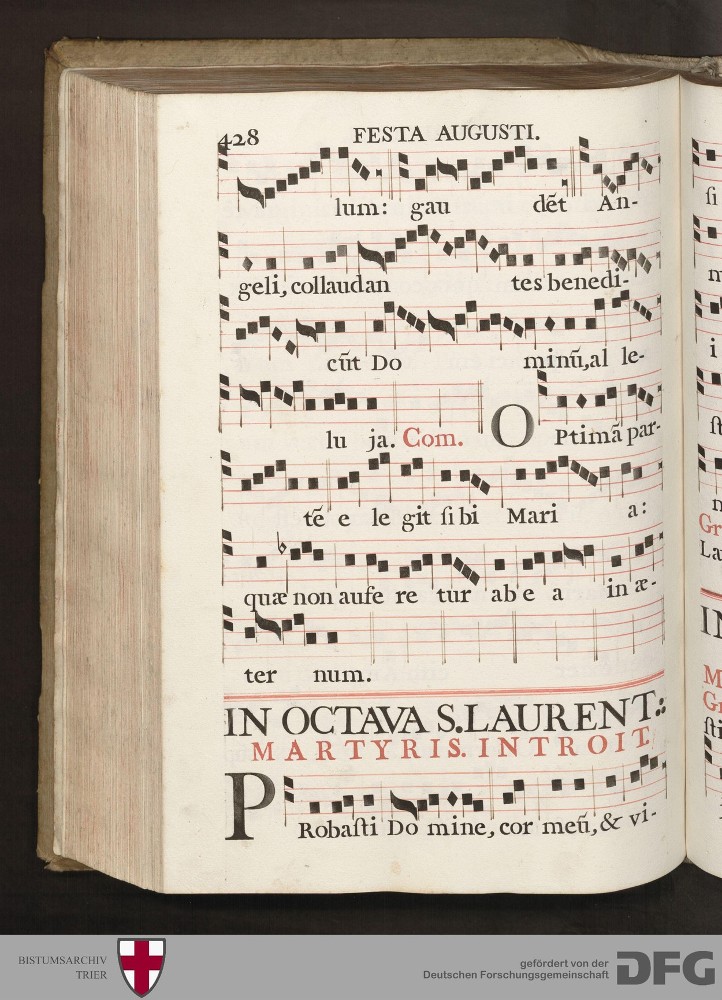 428 FESTA AUGUSTI.
lum: gau dēt An-
geli, collaudan tes benedi-
cūt Do minū, al le-
lu ja. Com. O Ptimā par-
tē e le git ſibi Mari a:
quæ non aufe re tur ab e a in æ-
ter num.
IN OCTAVA S. LAURENT:
MARTYRIS. INTROIT.
PRobaſti Do mine, cor meū, & vi-
ſi
m
i
ſt
n
Gr
La
IN
M
Gr
ſti
BISTUMSARCHIV
TRIER
gefördert von der
Deutschen Forschungsgemeinschaft
DFG